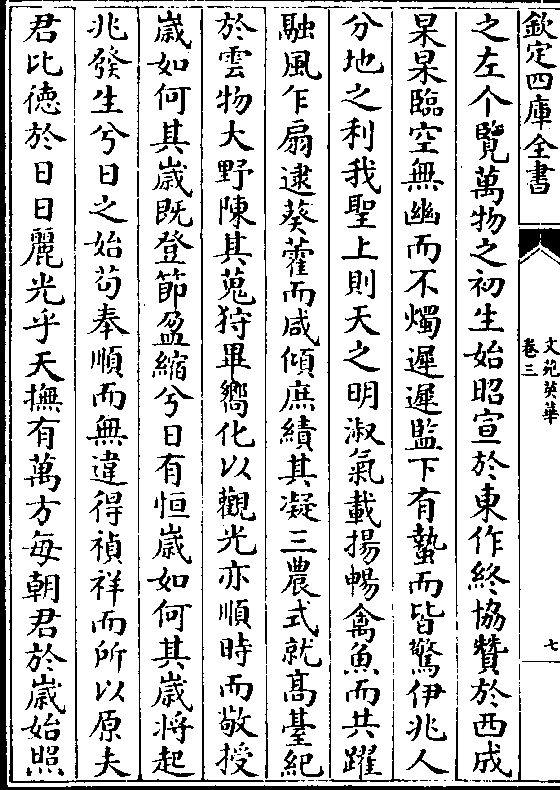 欽定四庫全書
文苑英華
卷三
七
之左个覽萬物之初生始昭宣於東作終協贊於西成
杲杲臨空無幽而不燭遲遲監下有蟄而皆驚伊兆人
分地之利我聖上則天之明淑氣載揚暢禽魚而共躍
融風乍扇逮葵藿而咸傾庶績其凝三農式就高臺紀
於雲物大野陳其蒐狩畢嚮化以觀光亦順時而敬授
嵗如何其嵗既登節盈縮兮日有恒嵗如何其嵗將起
兆發生兮日之始茍奉順而無違得禎祥而所以原夫
君比德於日日麗光乎天撫有萬方每朝君於嵗始照